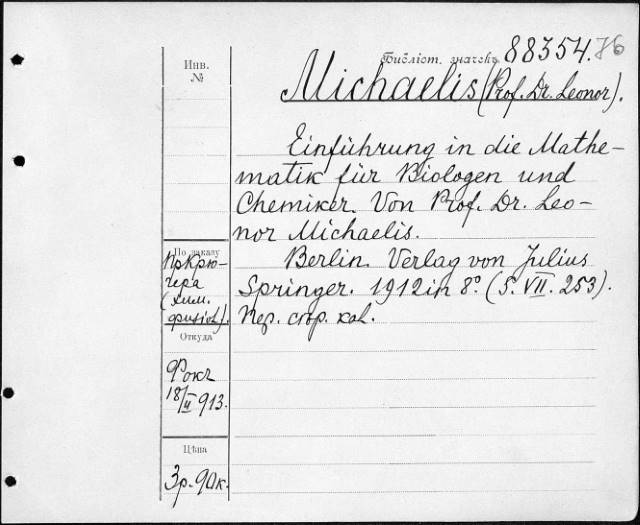 Инв.
№
Библіот. значекъ 88354.
Michaelis (Prof. Dr. Leonor).
Einführung in die Mathe-
matik für Biologen und
Chemiker. Von Prof. Dr. Leo-
nor Michaelis.
Berlin. Verlag von Julius
Springer. 1912 in 8° (S. VII. 253).
Пер. стр. кол.
По заказу
Пр Крю-
гера
(хим.
физіол).
Откуда
Фокъ
18/II 913.
Цѣна
3 р. 90 к.